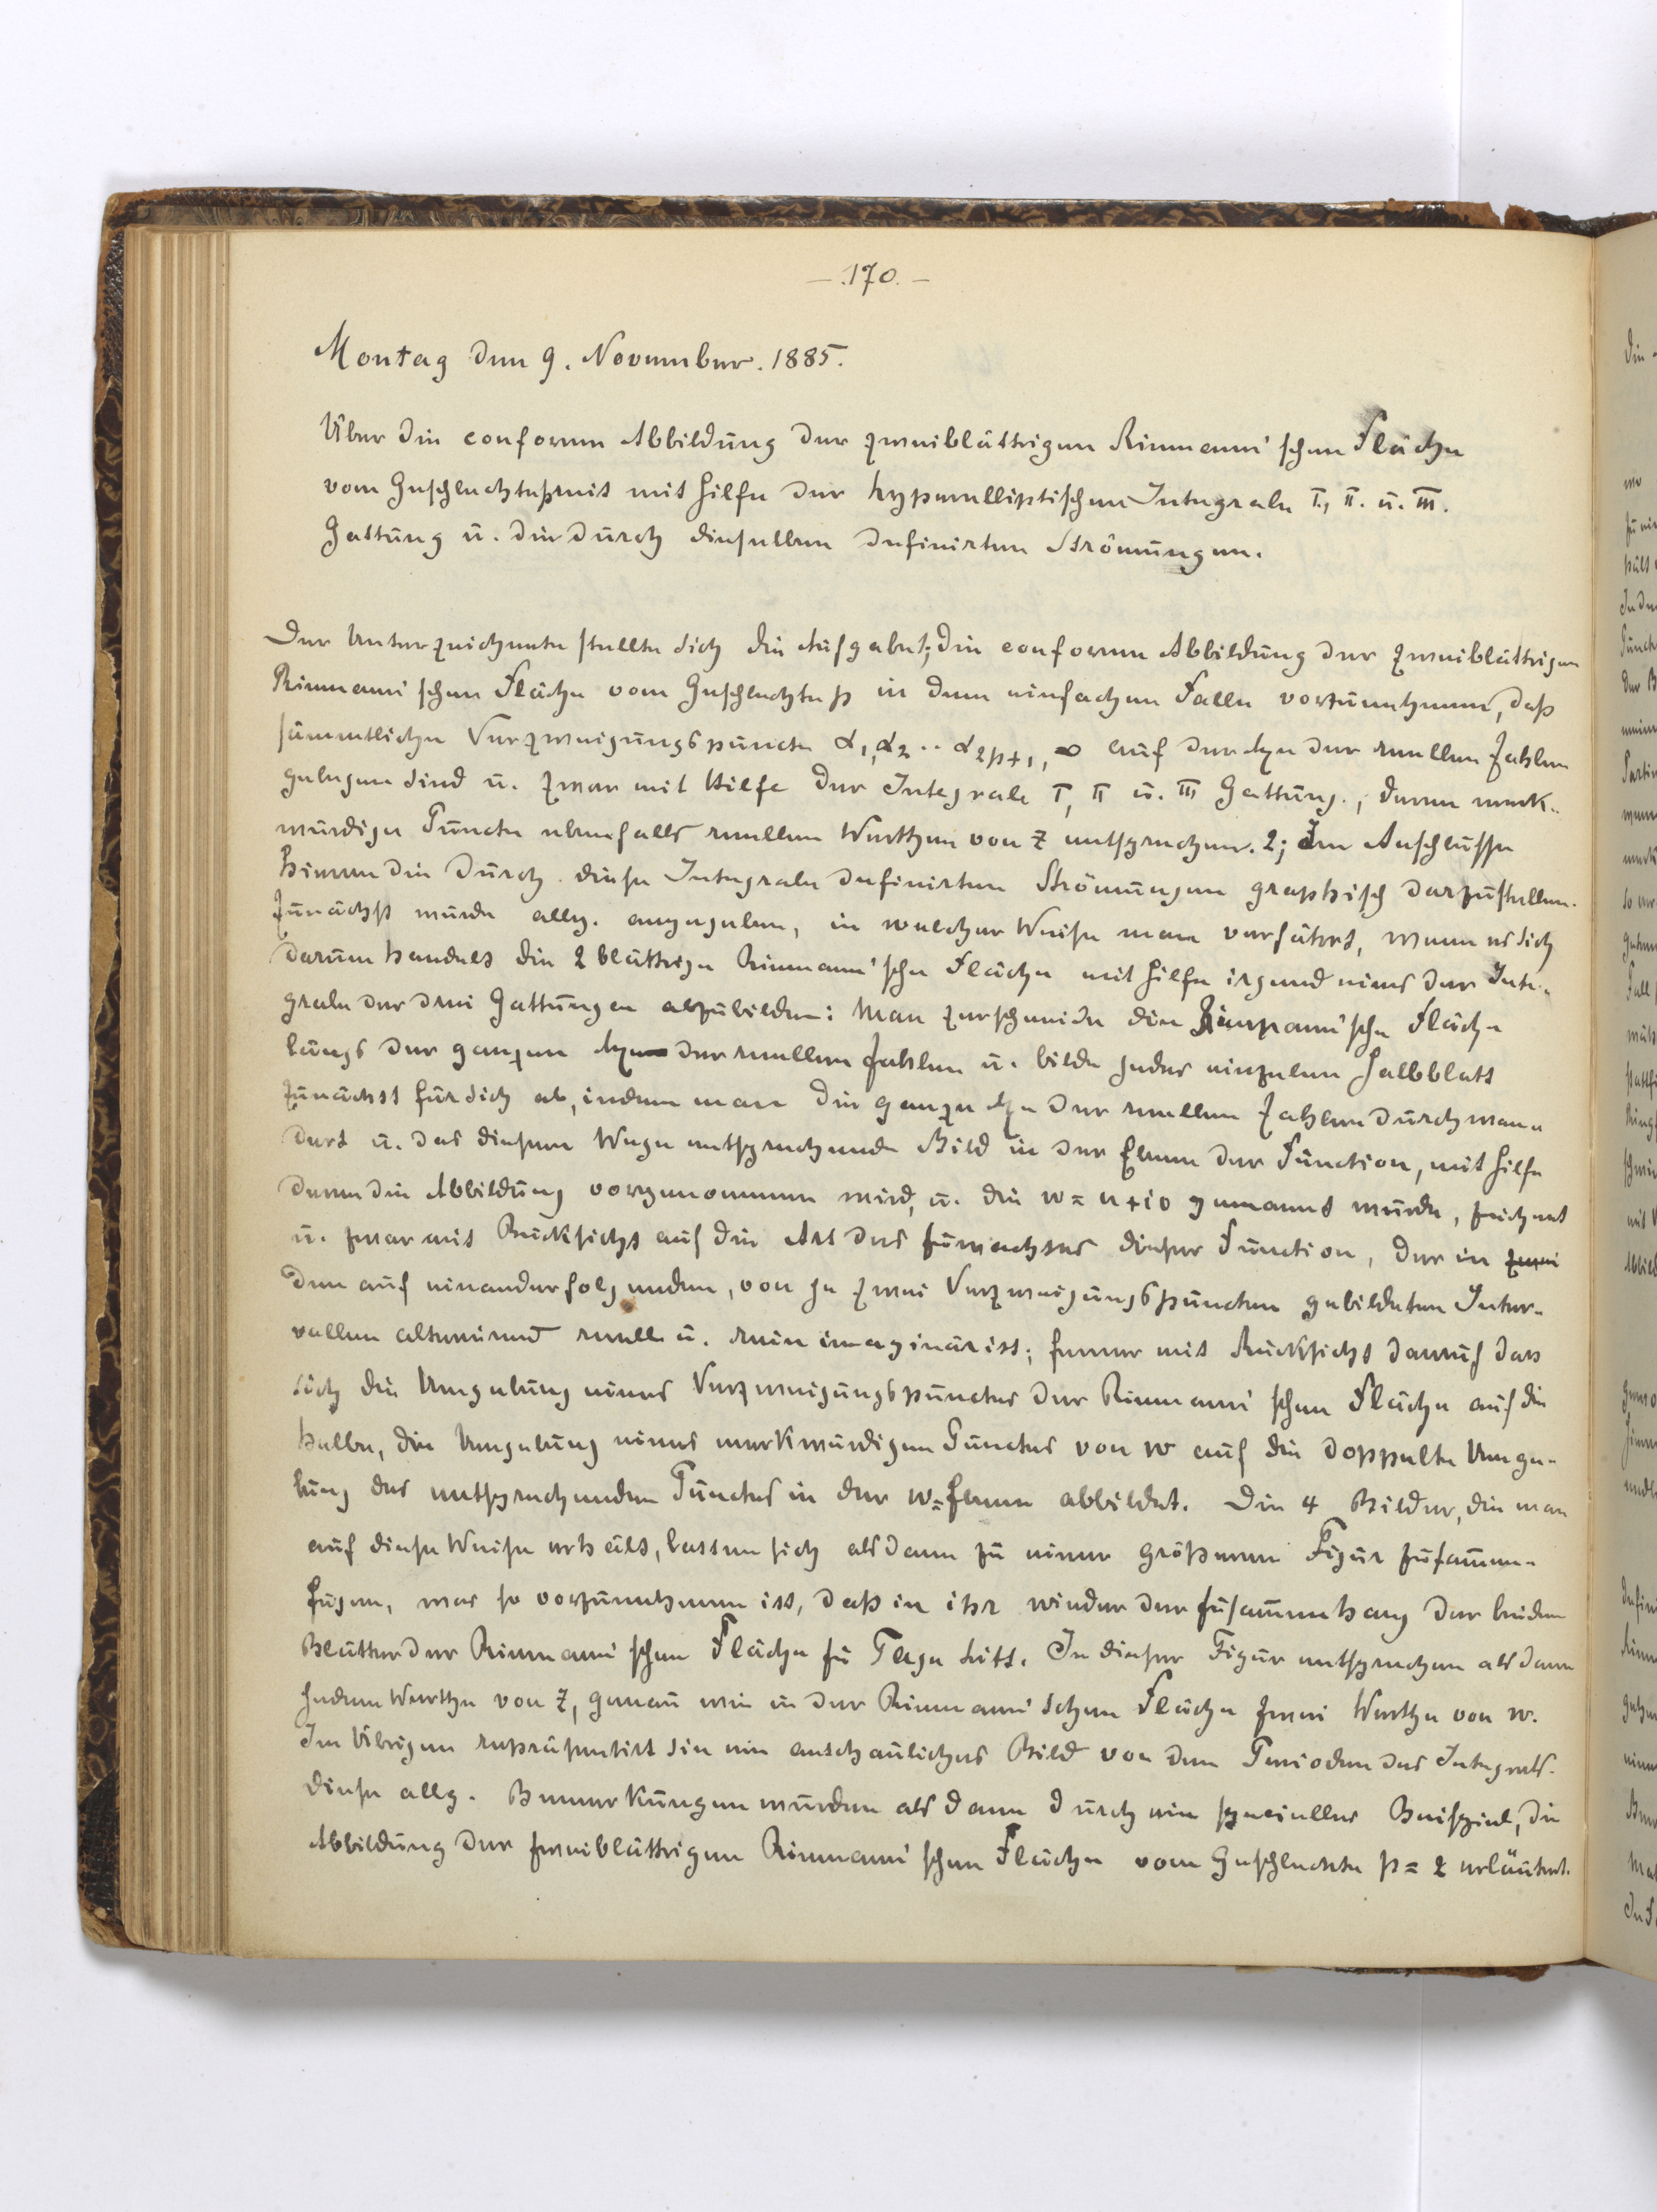 — 170. —
Montag den 9. November. 1885.
Über die conforme Abbildung der zweiblättrigen Riemann'schen Fläche
vom Geschlechte p mit Hilfe der hyperelliptischen Integrale I., II. u. III.
Gattung u. die durch dieselben definirten Strömungen.
Der Unterzeichnete stellte sich die Aufgabe 1; die conforme Abbildung der zweiblättrigen
Riemann'schen Fläche vom Geschlechte p in dem einfachen Falle vorzunehmen, daß
sämmtliche Verzweigungspuncte α1, α2 .. α2p+1, ∞ auf der Axe der reellen Zahlen
gelegen sind u. zwar mit Hilfe der Integrale I, II u. III Gattung, deren merk-
würdige Puncte ebenfalls reellen Werthen von z entsprechen. 2; Im Anschlusse
hieran die durch diese Integrale definirten Strömungen graphisch darzustellen.
Zunächst wurde allg. angegeben, in welcher Weise man verfährt, wenn es sich
darum handelt die 2 blättrige Riemann'sche Fläche mit Hilfe irgend eines der Inte-
grale der drei Gattungen abzubilden: Man zerschneide die Riemann'sche Fläche
längs der ganzen Axe der reellen Zahlen u. bilde jedes einzelne Halbblatt
zunächst für sich ab, indem man die ganze Axe der reellen Zahlen durchwan-
dert u. das diesem Wege entsprechende Bild in der Ebene der Function, mit Hilfe
deren die Abbildung vorgenommen wird, u. die w = u + iv genannt wurde, zeichnet
u. zwar mit Rücksicht auf die Art des Zuwachses dieser Function, der in zwei
den auf einanderfolgenden, von je zwei Verzweigungspuncten gebildeten Inter-
vallen alternirend reell u. rein imaginär ist; ferner mit Rücksicht darauf dass
sich die Umgebung eines Verzweigungspunctes der Riemann'schen Fläche auf die
halbe, die Umgebung eines merkwürdigen Punctes von w auf die doppelte Umge-
bung des entsprechenden Punctes in der w-Ebene abbildet. Die 4 Bilder, die man
auf diese Weise erhält, lassen sich alsdann zu einer größeren Figur zusammen-
fügen, was so vorzunehmen ist, daß in ihr wieder der Zusammenhang der beiden
Blätter der Riemann'schen Fläche zu Tage tritt. In dieser Figur entsprechen alsdann
jedem Werthe von z, genau wie in der Riemann'schen Fläche zwei Werthe von w.
Im Übrigen repräsentirt sie ein anschauliches Bild von den Perioden des Integrals.
Diese allg. Bemerkungen wurden alsdann durch ein specielles Beispiel, die
Abbildung der zweiblättrigen Riemann'schen Fläche vom Geschlechte p = 2 erläutert.